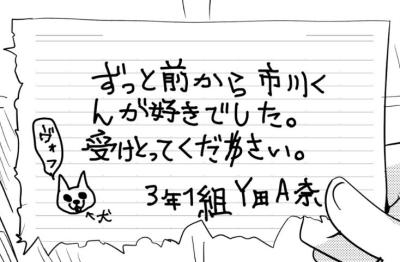 ずっと前から市川く
んが好きでした。
受けとってください。
3年1組 Y田A奈
ヴォフ
←犬